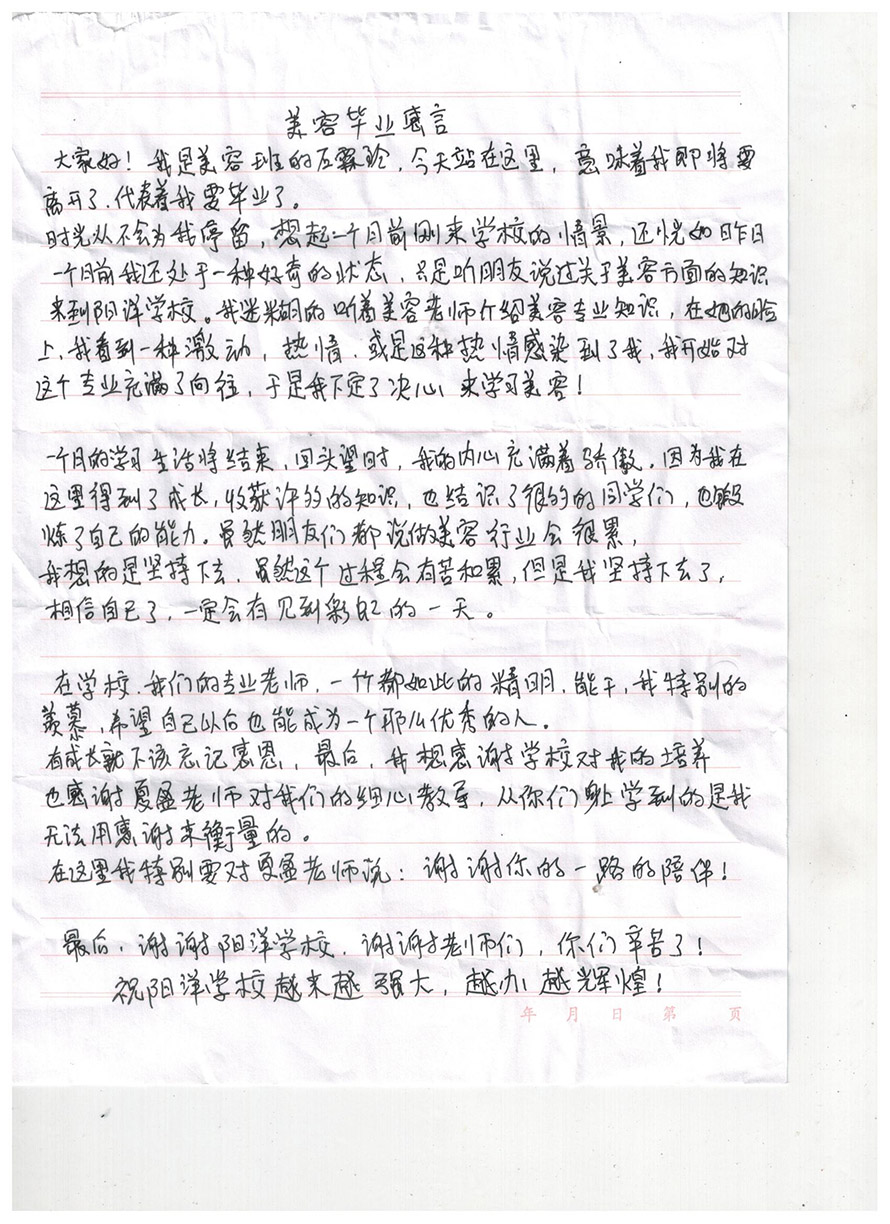 美容毕业感言
大家好！我是美容班的左霖玲，今天站在这里，意味着我即将要
离开了，代表着我要毕业了。
时光从不会为我停留，想起一个月前刚来学校的情景，还恍如昨日
一个月前我还处于一种好奇的状态，只是听朋友说过关于美容方面的知识
来到阳洋学校。我迷糊的听着美容老师介绍美容专业知识，在她的脸
上，我看到一种激动，热情，或是这种热情感染到了我，我开始对
这个专业充满了向往，于是我下定了决心来学习美容！
一个月的学习生活将结束，回头望时，我的内心充满着骄傲。因为我在
这里得到了成长，收获许多的知识，也结识了很多的同学们，也锻
炼了自己的能力。虽然朋友们都说做美容行业会很累，
我想的是坚持下去，虽然这个过程会有苦和累，但是我坚持下去了，
相信自己了，一定会有见到彩虹的一天。
在学校，我们的专业老师，一个都如此的精明，能干，我特别的
羡慕，希望自己以后也能成为一个那么优秀的人。
有成长就不该忘记感恩，最后，我想感谢学校对我的培养
也感谢夏盈老师对我们的细心教导，从你们身上学到的是我
无法用感谢来衡量的。
在这里我特别要对夏盈老师说：谢谢你的一路的陪伴！
最后，谢谢阳洋学校，谢谢老师们，你们辛苦了！
祝阳洋学校越来越强大，越办越辉煌！
年 月 日 第 页